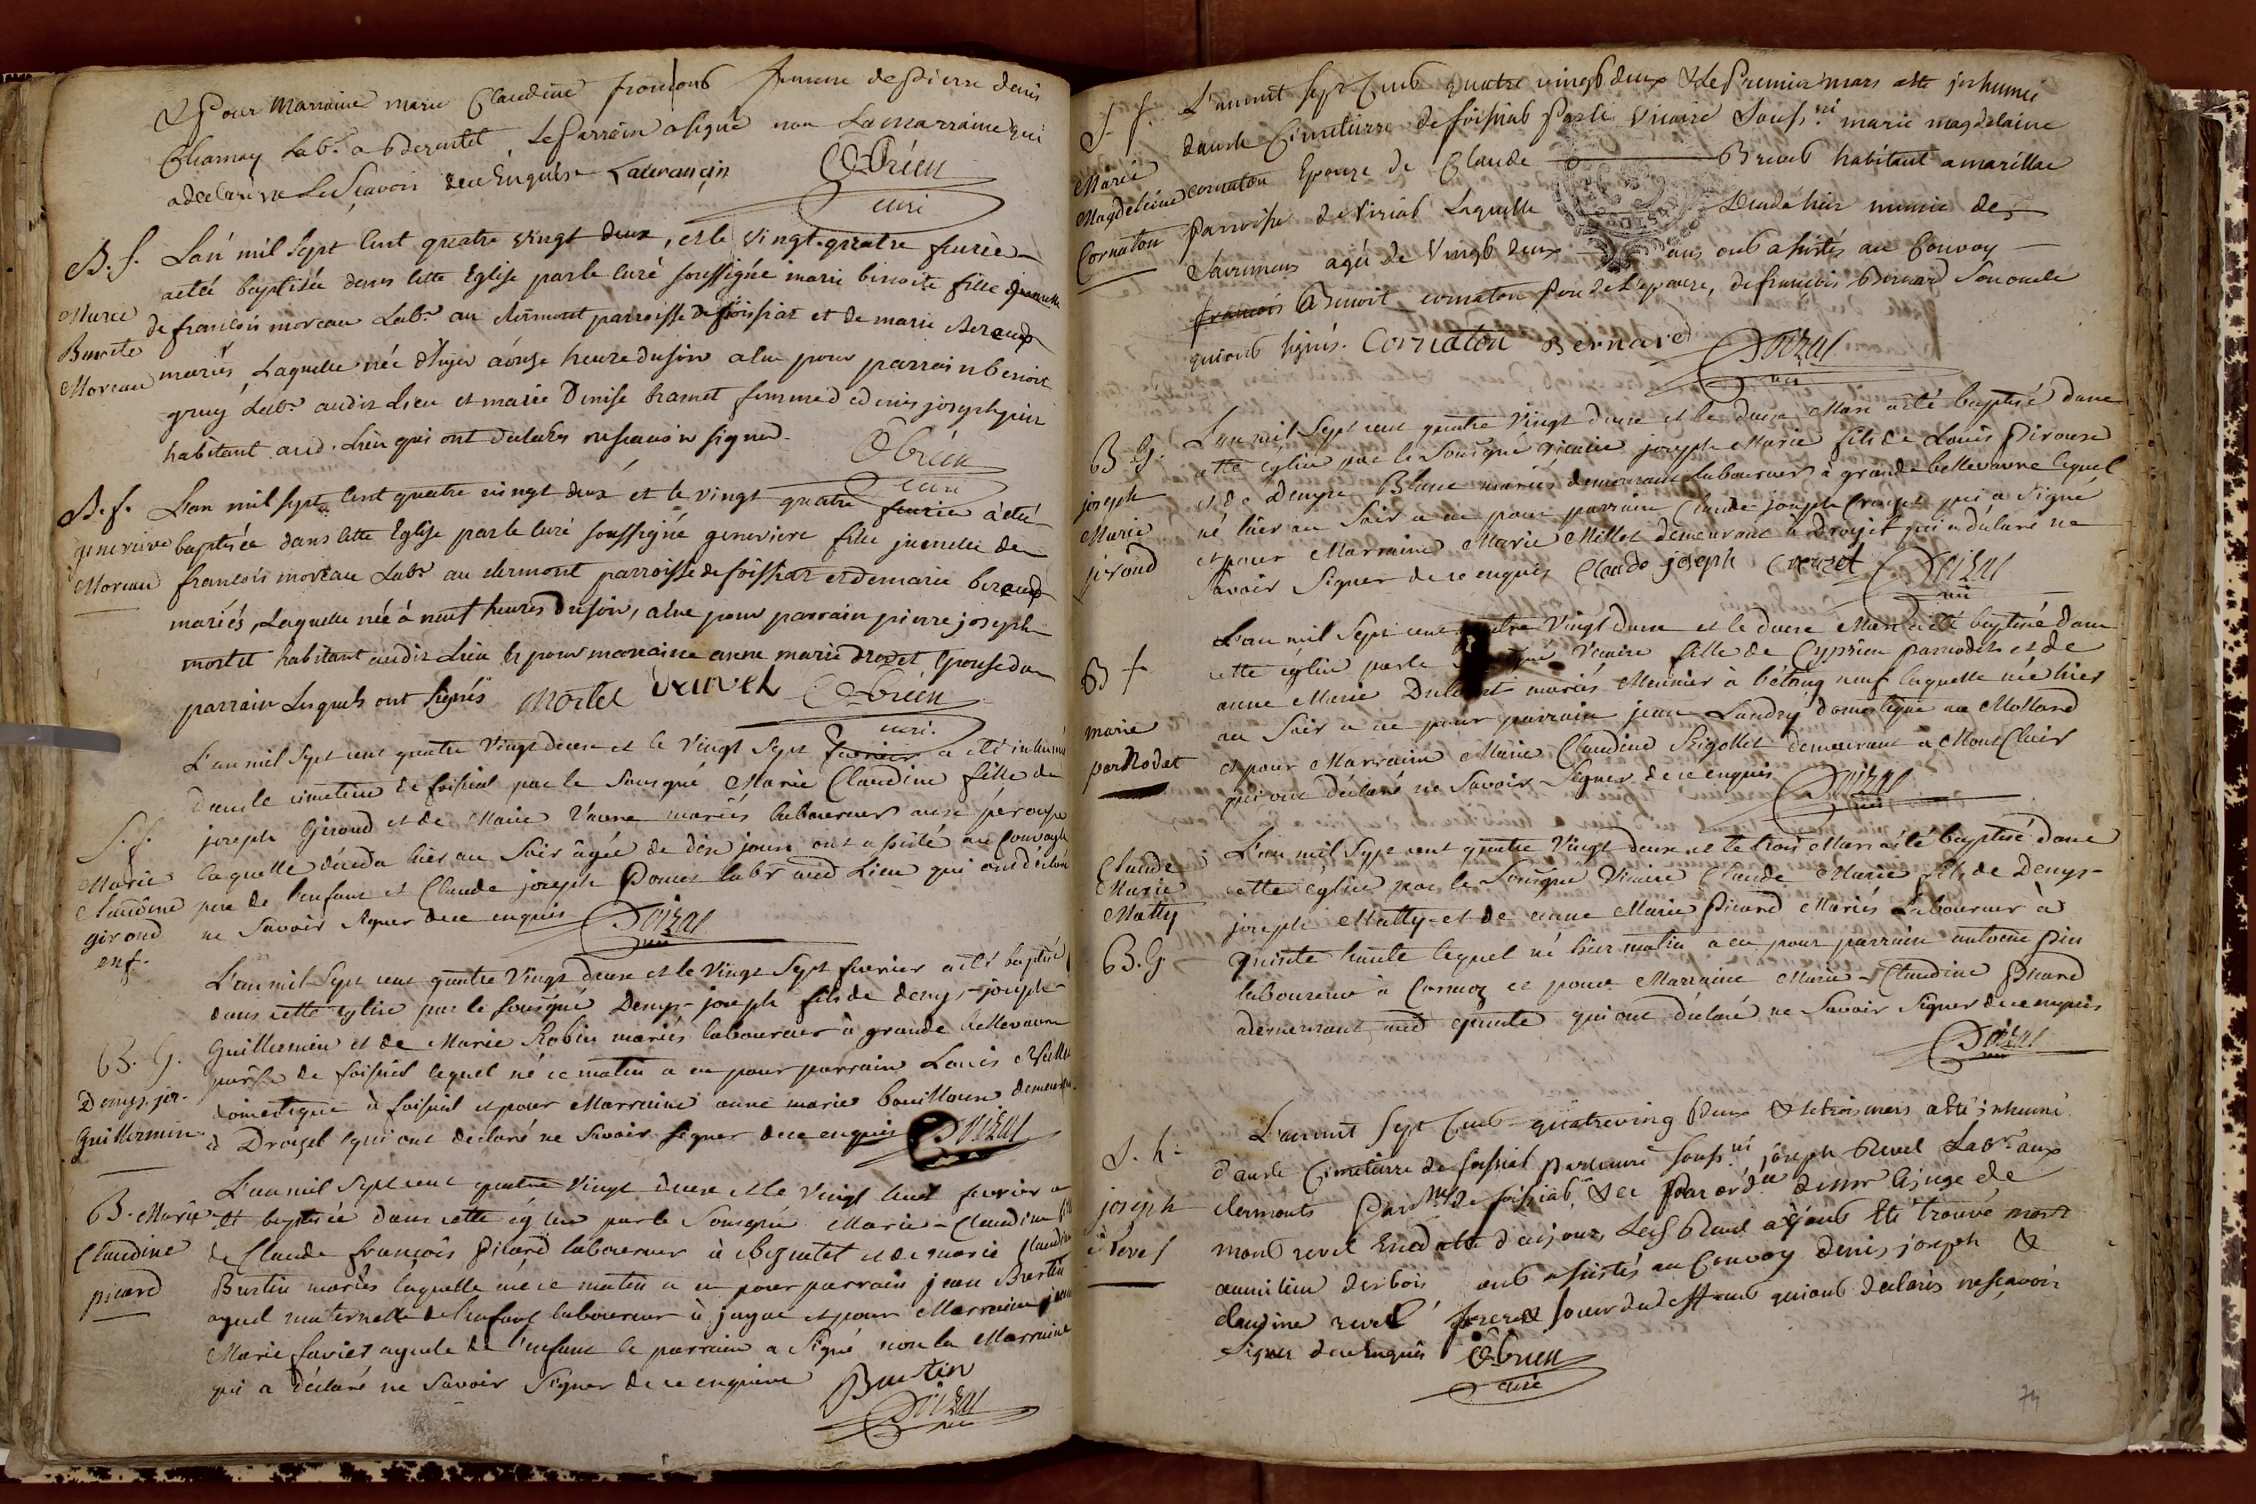 & Pour Marraine marie Claudine francons femme de Pierre denis
Chamay Labr. a Bezentet, Le Parrain a signé non La marraine qui
a declaré ne Le Scavoir de ce Enquise
Obrien
curé
B. f.
Marie
Benoite
Moreau
L'an mil Sept Cent quatre vingt deux, et le vingt quatre feurié
a eté baptisée dans cette Eglise par le curé soussigné marie benoite fille jumelle
de francois moreau Labr. au clermont parroisse de foissiat et de marie Beraud
mariés, Laquelle née d'hyer à onze heure du soir a eue pour parrain benoit
gruy Labr. audit Lieu et marie Denise bramet femme de denis joseph
habitant aud. Lieu qui ont déclarés ne scavoir signer.
Obrien
curé
B. f.
genevieve
Moreau
L'an mil sept Cent quatre vingt deux et le vingt quatre feurié a eté
baptisée dans cette Eglise par le curé soussigné genevieve fille jumelle de
francois moreau Labr. au clermont parroisse de foissiat et de marie beraud
mariés, Laquelle née à neuf heures du soir, a eue pour parrain pierre joseph
mortel habitant audit Lieu et pour marraine anne marie Epouse du
parrain Lesquels ont signés Mortel Obrien
curé.
S. f.
Marie
Claudine
girond
enf.
L'an mil Sept cent quatre Vingt deux et le Vingt Sept fevrier a eté inhumé
dans le cimetiere de foissiat par le Sousigné Marie Claudine fille de
joseph Girond et de Marie Vavre mariés laboureur aux pérouse
laquelle décéda hier au Soir âgée de dix jours ont assisté au Convoy le
pere de l'enfant et Claude joseph Poncet labr aud Lieu qui ont déclaré
ne Savoir signer de ce enquis Poizat
vic
B. G.
Denys jos.
Guillermin
L'an mil Sept cent quatre Vingt deux et le Vingt Sept fevrier a eté baptisé
dans cette eglise par le sousigné Denys-joseph fils de denys-joseph
Guillermin et de Marie Robin mariés laboureur à grande bellevavre
parsse de foissiat lequel né ce matin a eu pour parrain Louis
domestique à foissiat et pour Marraine anne marie bouilloux demeurant
à Drozet qui ont declaré ne Savoir signer de ce enquis Poizat
B. Marie
Claudine
picard
L'an mil Sept cent quatre Vingt deux et le Vingt huit fevrier a
eté baptisée dans cette église par le Sousigné Marie-Claudine fille
de Claude françois Picard laboureur à Bezentet et de marie Claudine
Burtin mariés laquelle née ce matin a eu pour parrain jean Burtin
ayeul maternelle de l'enfant laboureur à jayat et pour Marraine
Marie favier ayeule de l'enfant le parrain a Signé non la Marraine
qui a déclaré ne Savoir Signer de ce enquise
Burtin
Poizat
vic
S. f.
Marie
Magdeleine
Cornaton
L'an mil sept Cent quatre vingt deux & le Premier mars a eté inhumée
dans le Cimetierre de foissiat Par le Vicaire Souss.né marie magdelaine
cornaton Epouze de Claude Brevet habitant a marillac
Parroisse de Viriat Laquelle Deceda hier munie des
Sacremens agée de Vingt deux ans ont assistés au Convoy
francois Benoit cornaton Pere de L'epouze, & francois Bernard Son oncle
qui ont signés. Cornaton Bernard Poizat
vic
B. G.
joseph
Marie
pirond
L'an mil Sept cent quatre Vingt deux et le deux Mars a eté baptisé dans
cette église par le Sousigné vicaire joseph Marie fils de Louis Pirouse
et de Denyse Blanc mariés demeurant laboureur à grande bellevavre lequel
né hier au Soir a eu pour parrain Claude joseph Crozet qui a Signé
et pour Marraine Marie Millot demeurant à Drozet qui a déclaré ne
Savoir Signer de ce enquis Claude joseph Crozet Poizat
vic
B f
marie
parRodet
L'an mil Sept cent quatre Vingt deux et le deux Mars a eté baptisé dans
cette église par le Vicaire fille de Cyprien parrodet et de
anne Marie mariés Meunier à bétang neuf laquelle née hier
au Soir a eu pour parrain jean Landry domestique au Molland
et pour Marraine Marie Claudine Rigollet demeurant a Mont Clair
qui ont déclaré ne Savoir Signer de ce enquis Poizat
vic
Claude
Marie
Matty
B. G
L'an mil Sept cent quatre Vingt deux et le trois Mars a eté baptisé dans
cette église par le Sousigné Vicaire Claude Marie fils de Denys-
joseph Matty et de anne Marie Picard Mariés Laboureur à
quinte lequel né hier matin a eu pour parrain antoine Pin
laboureur à Cormoz et pour Marraine Marie-Claudine Picard
demeurant aud quinte qui ont déclaré ne Savoir Signer de ce enquis
Poizat
vic
S. h.
joseph
revel
L'an mil Sept Cent quatre ving Deux & le trois mars a eté inhumé
dans le Cimetierre de foissiat Par le curé souss.né joseph Revel Labr. aux
clermonts Parsse de foissiat, & ce Par ord.ce de mr le juge de
mont revel En datte de ce jour, Led. Revel ayant Eté trouvé mort
au milieu des bois ont assistés au Convoy denis joseph &
claudine revel frere & soeur du deffunt qui ont declarés ne scavoir
Signer de ce Enquis Obrien
curé
74